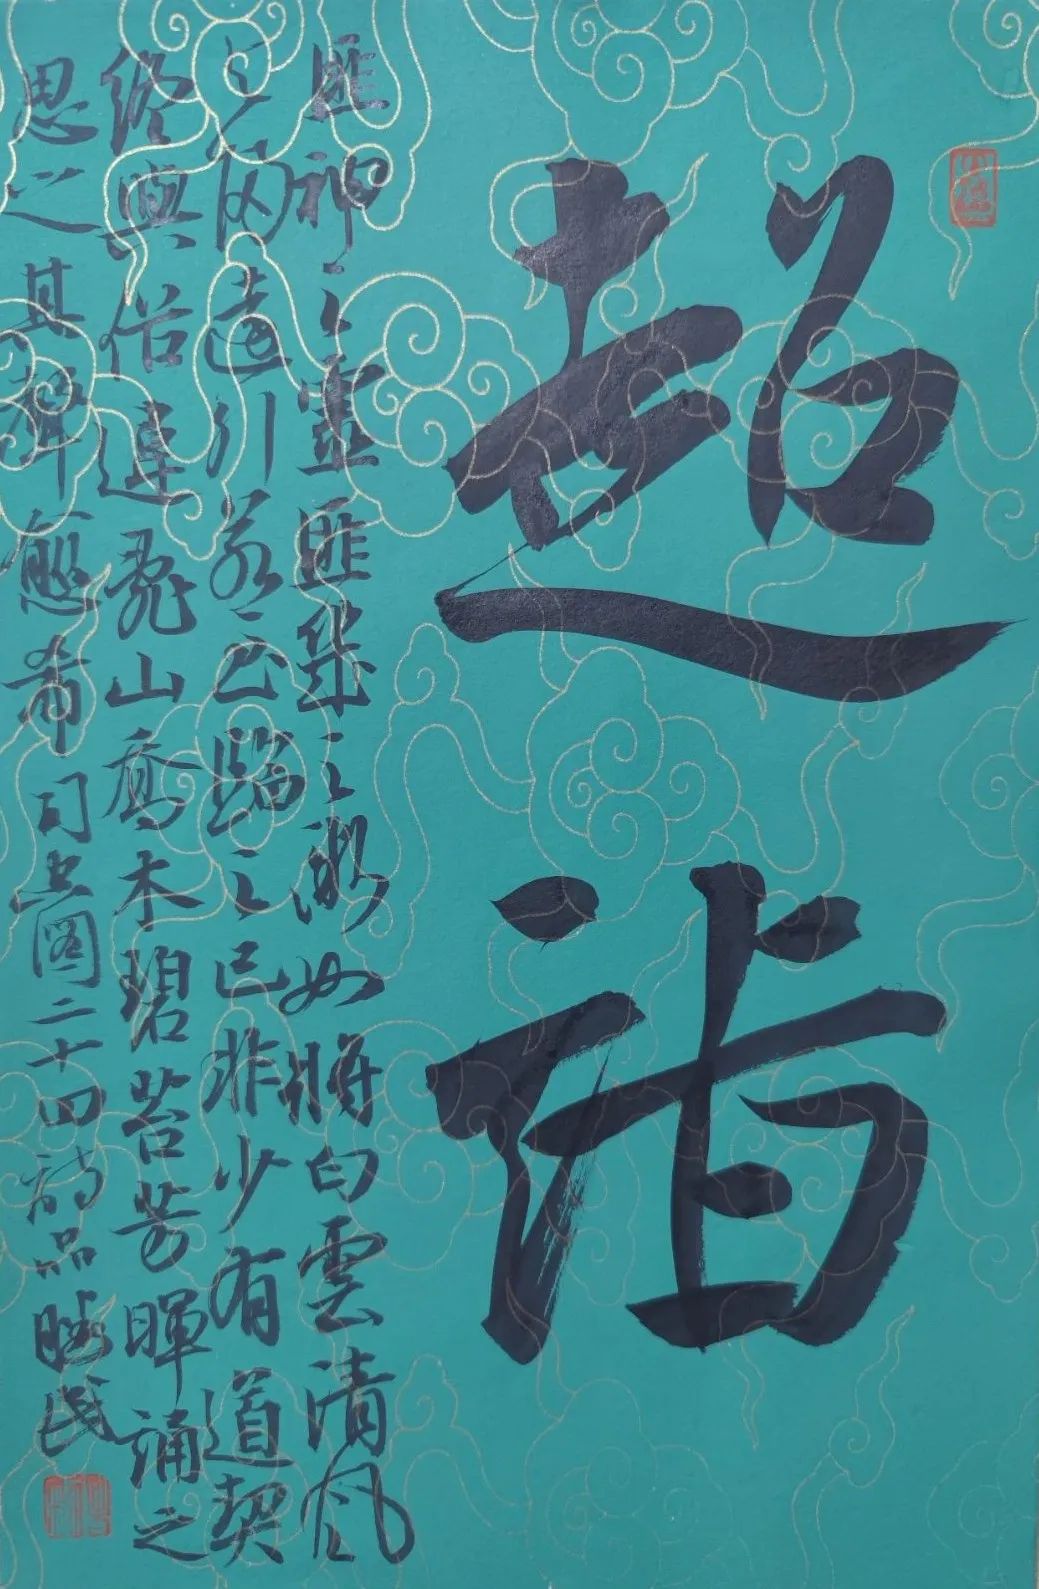 超詣
匪神之靈匪幾之微如將白雲清風
与歸遠引若至臨之已非少有道契
終與俗違亂山喬木碧苔芳暉誦之
思之其聲愈希司空图二十四詩品